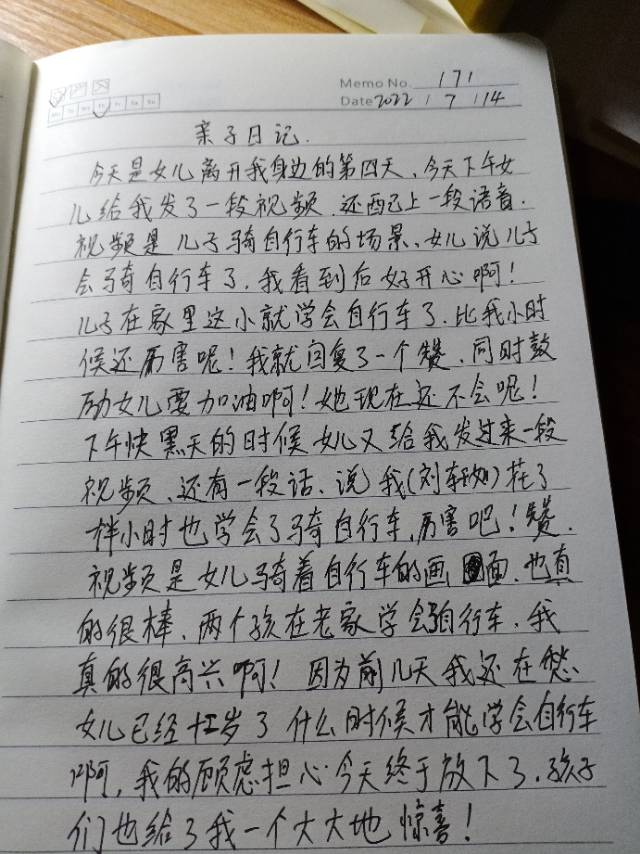 Memo No. 171
Date 2022 / 7 / 14
亲子日记.
今天是女儿离开我身边的第四天、今天下午女
儿给我发了一段视频.还配上一段语音.
视频是儿子骑自行车的场景、女儿说儿子
会骑自行车了.我看到后好开心啊!
儿子在家里这小就学会自行车了.比我小时
候还厉害呢!我就回复了一个赞.同时鼓
励女儿要加油啊!她现在还不会呢!
下午快黑天的时候女儿又给我发过来一段
视频、还有一段话、说我(刘轩)花了
半小时也学会了骑自行车,厉害吧!赞.
视频是女儿骑着自行车的画面.也真
的很棒、两个孩在老家学会自行车.我
真的很高兴啊!因为前几天我还在愁、
女儿已经十二岁了什么时候才能学会自行车
啊,我的顾虑担心今天终于放下了.孩子
们也给了我一个大大地惊喜!